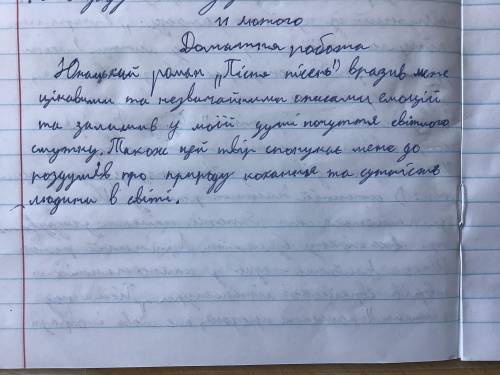 11 лютого
Домашня робота
Юнацький роман „Пісня пісень") вразив мене
цікавими та незвичайними описами емоцій
та залишив у моїй душі почуття світлого
смутку. Також цей твір спонукає мене до
роздумів про природу кохання та сутність
людини в світі.